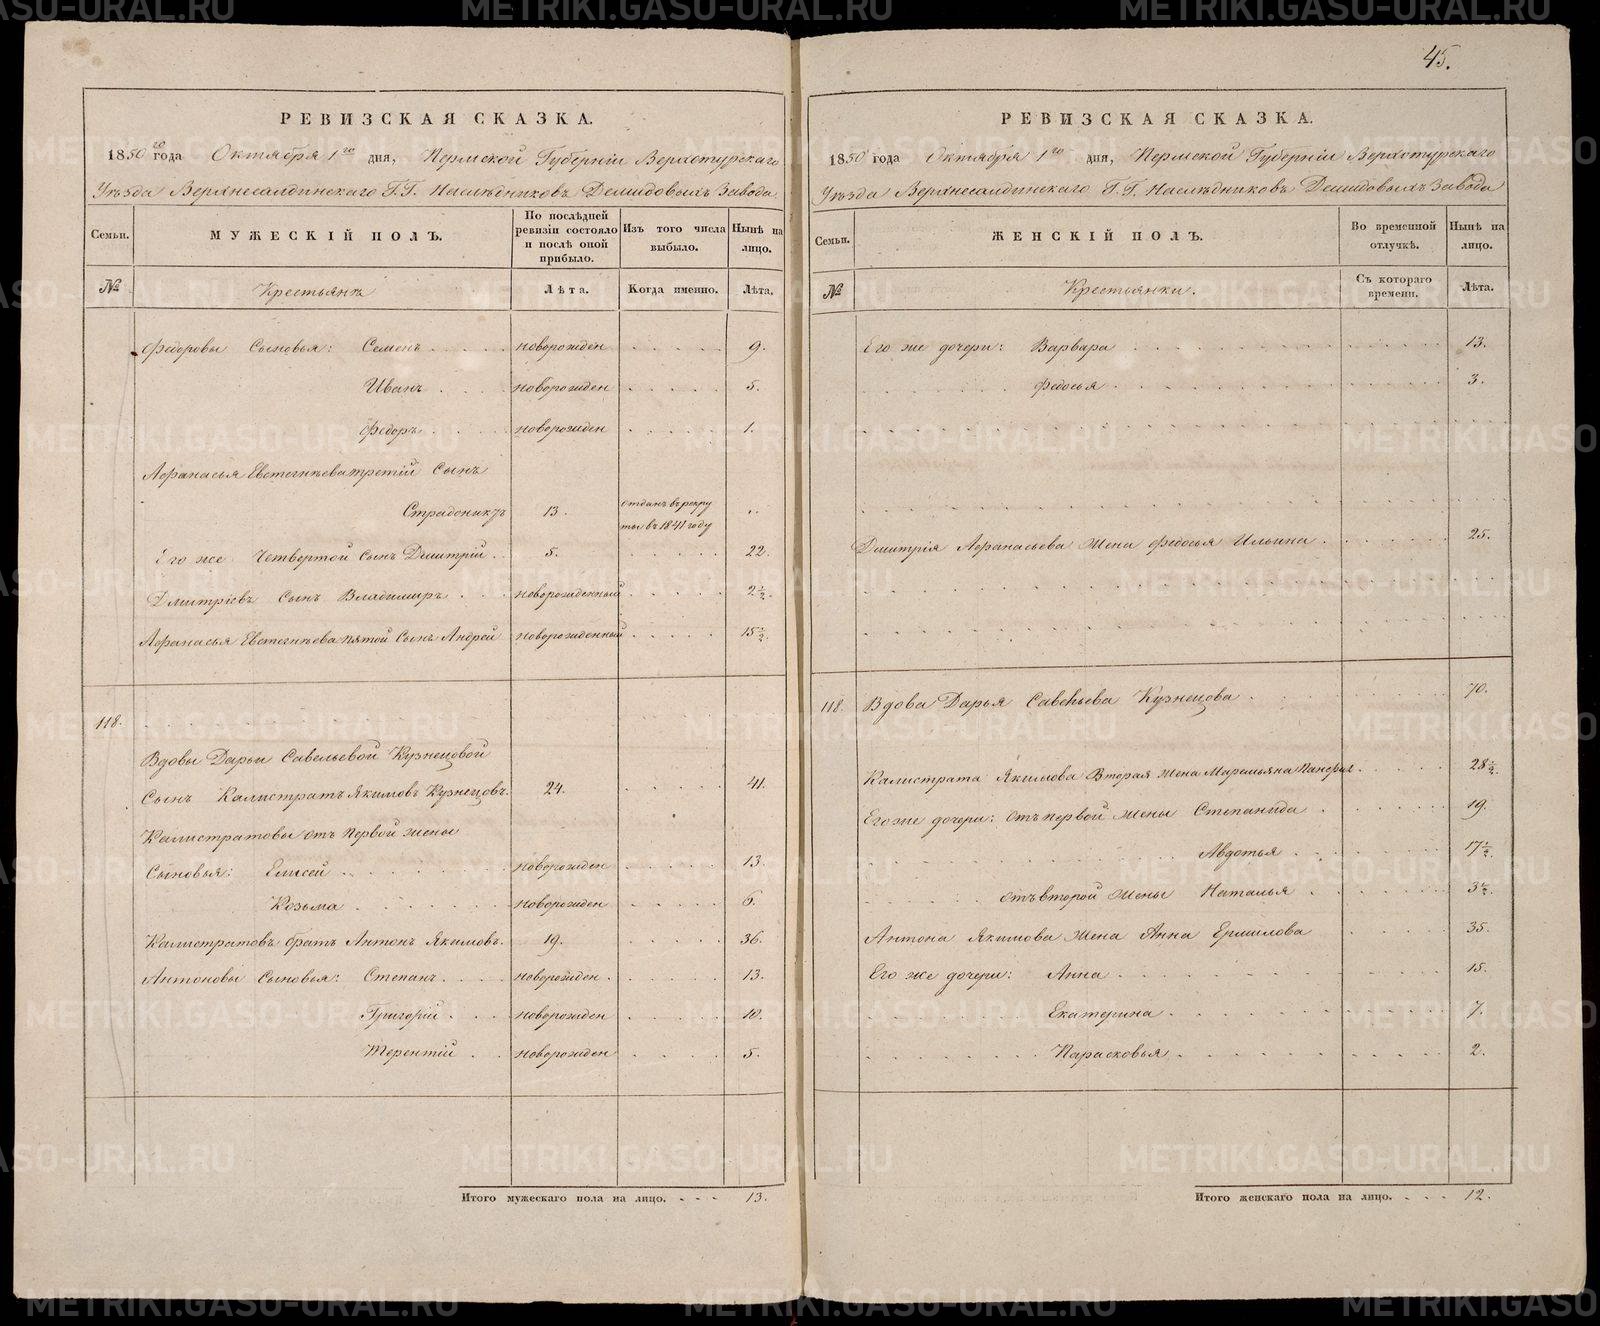 45.
РЕВИЗСКАЯ СКАЗКА.
1850го года Октября 1го дня, Пермской Губерніи Верхотурскаго
Уѣзда Верхнесалдинскаго Г.Г. Наслѣдниковъ Демидовыхъ Завода
Семьи.
МУЖЕСКІЙ ПОЛЪ.
По послѣдней ревизіи состояло и послѣ оной прибыло.
Изъ того числа выбыло.
Нынѣ на лицо.
№
Крестьянъ
Лѣта.
Когда именно.
Лѣта.
Федоровы Сыновья: Семенъ новорожден 9.
Иванъ новорожден 5.
Федоръ новорожден 1.
Афанасья Евстегнѣева третій Сынъ
13. отданъ въ рекру
ты въ 1841 году
Его же Четвертой сынъ Дмитрій 5. 22.
Дмитріевъ Сынъ Владимиръ новорожденный 2½.
Афанасья Евстегнѣева пятой Сынъ Андрей новорожденный 15½.
118.
Вдовы Дарьи Савельевой Кузнецовой
Сынъ Калистратъ Якимовъ Кузнецовъ. 24. 41.
Калистратовы отъ первой жены
Сыновья: Елисей новорожден 13.
Козьма новорожден 6.
Калистратовъ братъ Антонъ Якимовъ. 19. 36.
Антоновы Сыновья: Степанъ новорожден. 13.
Григорій новорожден 10.
Терентій новорожден 5.
Итого мужескаго пола на лицо. 13.
РЕВИЗСКАЯ СКАЗКА.
1850 года Октября 1го дня, Пермской Губерніи Верхотурскаго
Уѣзда Верхнесалдинскаго Г.Г. Наслѣдниковъ Демидовыхъ Завода
Семьи.
ЖЕНСКІЙ ПОЛЪ.
Во временной отлучкѣ.
Нынѣ на лицо.
№
Крестьянки.
Съ котораго времени.
Лѣта.
Его же дочери: Варвара 13.
Федосья 3.
Дмитрія Афанасьева жена Федосья Ильина 25.
118. Вдова Дарья Савельева Кузнецова 70.
Калистрата Якимова Вторая жена Маремьяна 28½.
Его же дочери: отъ первой жены Степанида 19.
Авдотья 17½.
отъ второй жены Наталья 3½.
Антона Якимова жена Анна Ермилова 35.
Его же дочери: Анна 15.
Екатерина 7.
Парасковья 2.
Итого женскаго пола на лицо. 12.
METRIKI.GASO-URAL.RU